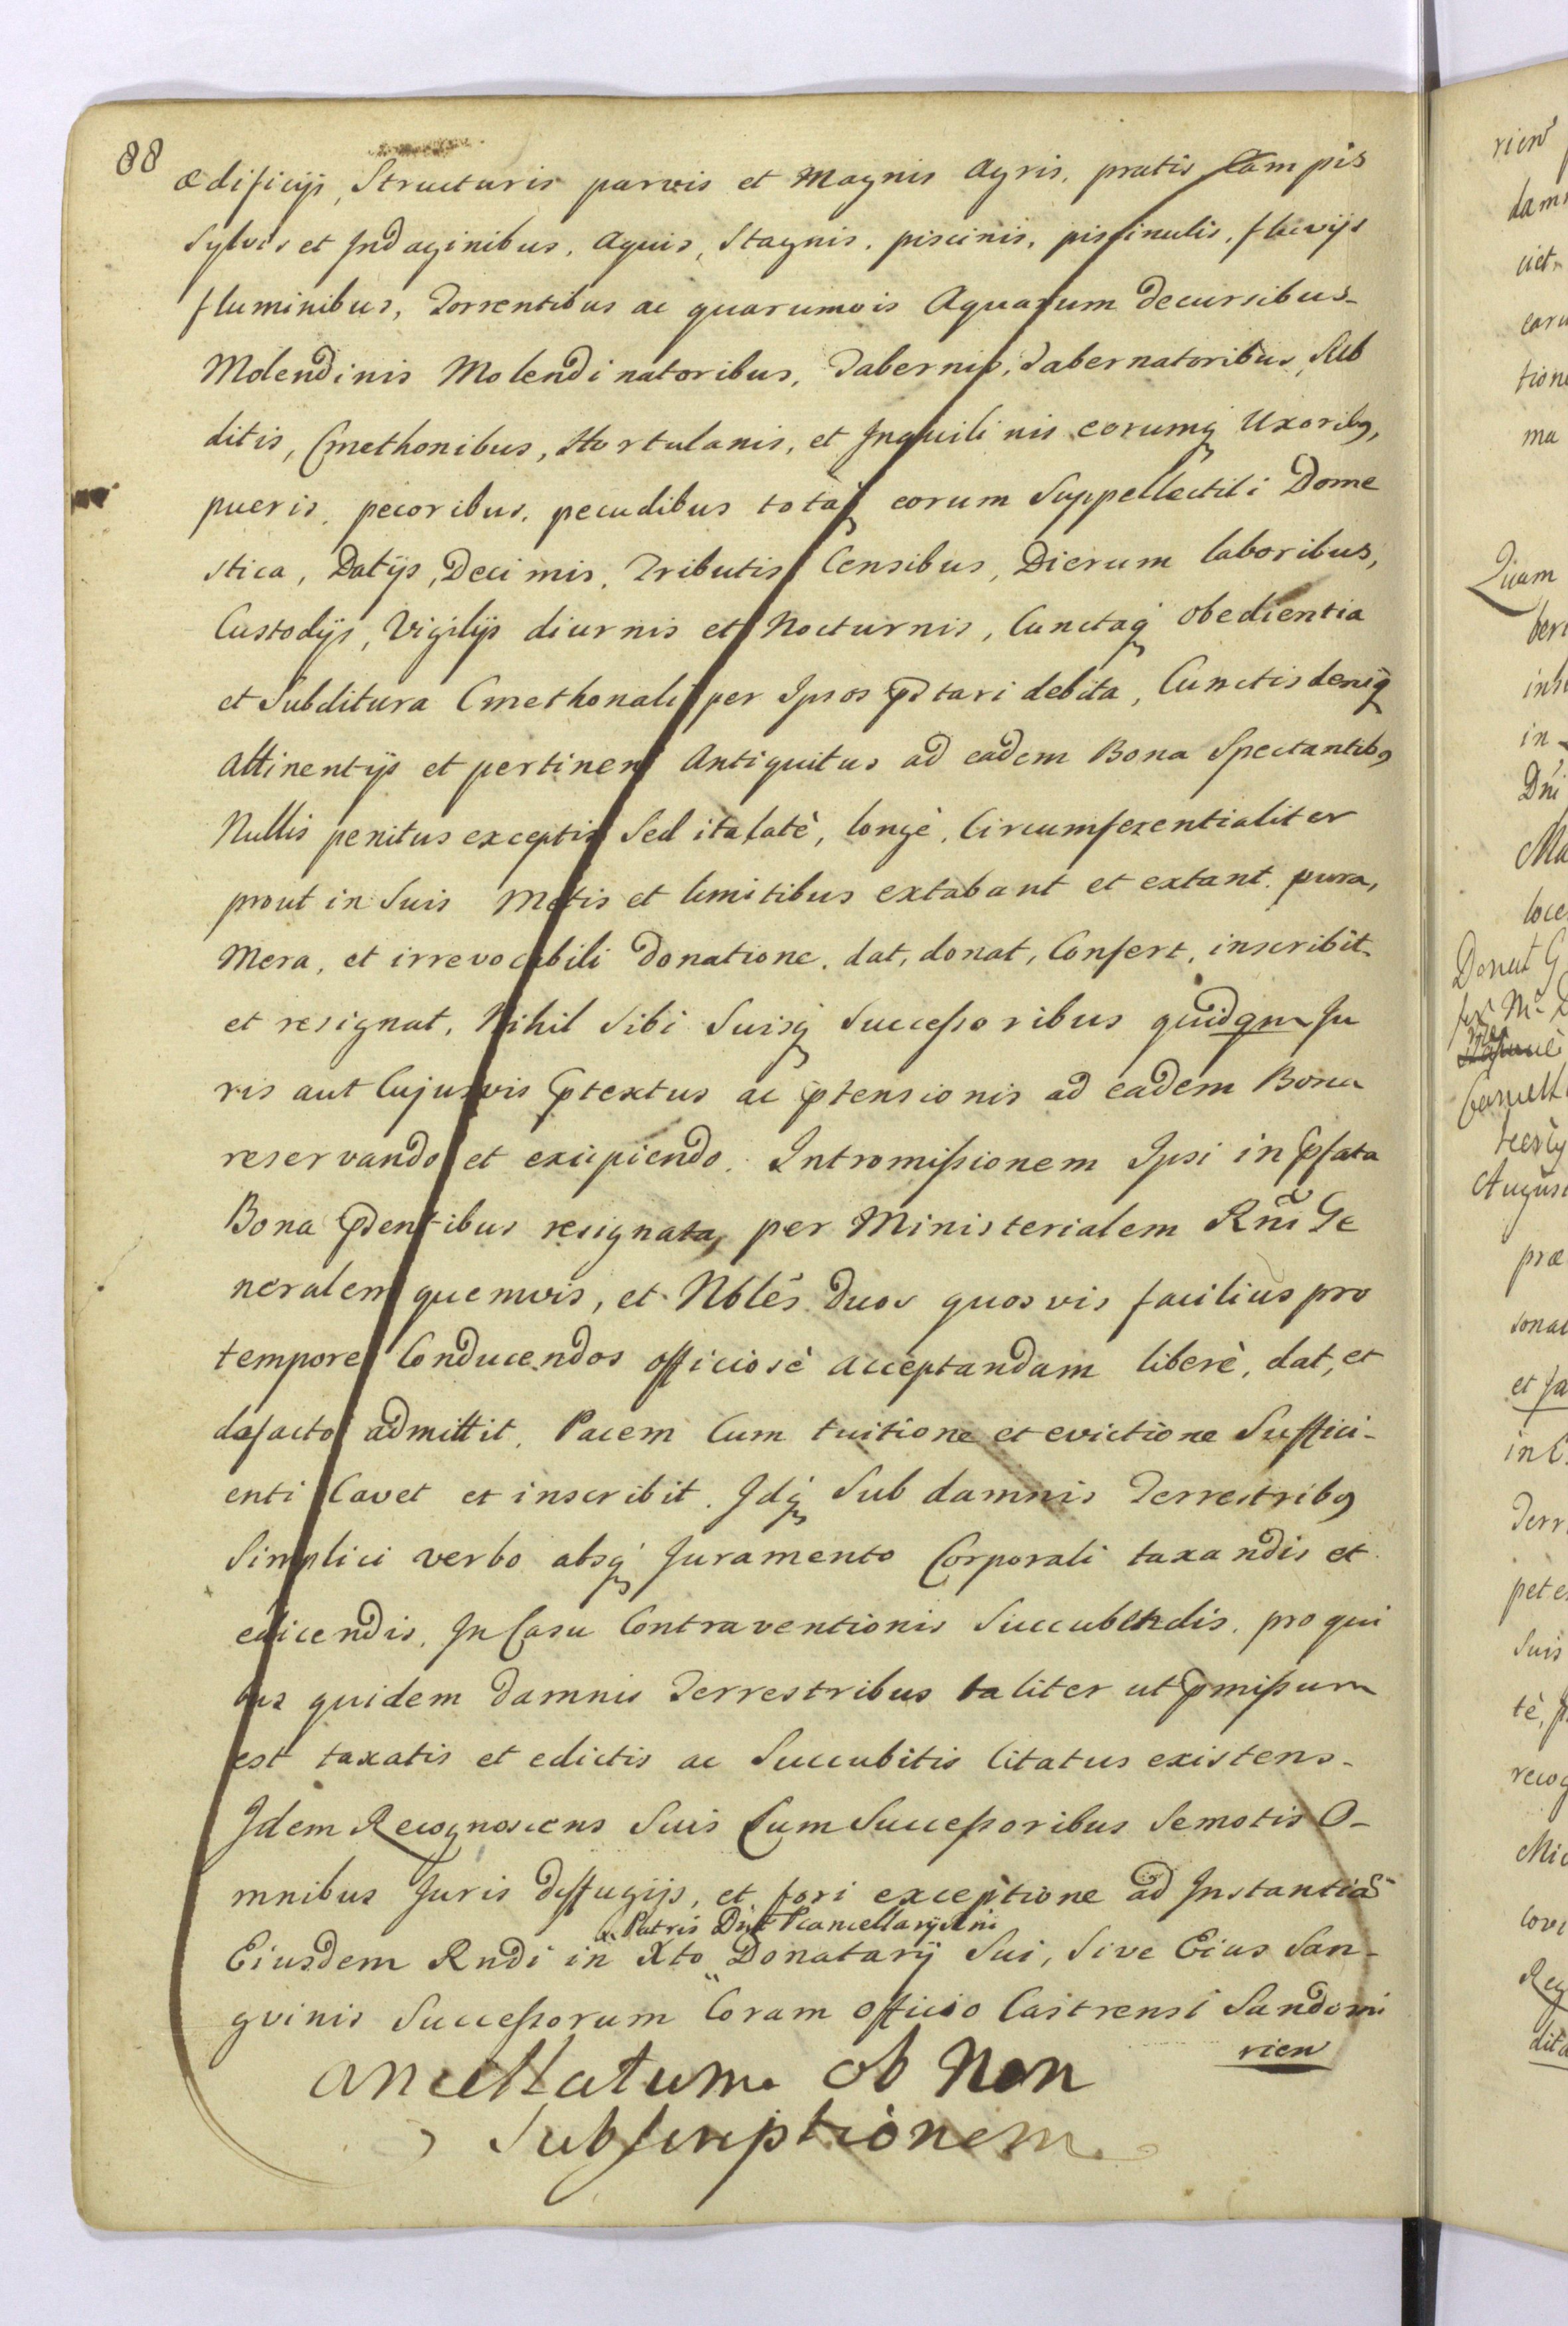 88
ædificijs, Structuris parvis et Magnis Agris, pratis Campis
Sylvis et Indaginibus, Aquis, Stagnis, piscinis, piscinulis, fluvijs
fluminibus, Torrentibus ac quarumvis Aquarum decursibus
Molendinis Molendinatoribus, Tabernis, Tabernatoribus, Sub
ditis, Cmethonibus, Hortulanis, et Inquilinis eorumq Uxoribq,
pueris, pecoribus, pecudibus totaq eorum Suppellectili Dome
stica, Datijs, Decimis, Tributis Censibus, Dierum laboribus,
Custodijs, Vigilijs diurnis et Nocturnis, Cunctaq obedientia
et Subditura Cmethonali per Ipsos pstari debita, Cunctis deniq
Attinentijs et pertinen Antiquitus ad eadem Bona Spectantibq
Nullis penitus exceptis Sed ita, latè, longè, Circumferentialiter
prout in Suis Metis et limitibus extabant et extant, pura,
Mera, et irrevocabili Donatione, dat, donat, Confert, inscribit
et resignat, Nihil Sibi Suisq Successoribus quidqm Ju
ris aut Cujusvis ptextus ac ptensionis ad eadem Bona
reservando et excipiendo. Intromissionem Ipsi in pfata
Bona psentibus resignata, per Ministerialem Rni Ge
neralem quemvis, et Nobles Duos quosvis facilius pro
tempore Conducendos officiosè acceptandam liberè, dat, et
defacto admittit, Pacem Cum tuitione et evictione Suffici-
enti Cavet et inscribit. Idq Sub damnis Terrestribq
Simplici verbo absq Juramento Corporali taxandis et
edicendis, In Casu Contraventionis Succubendis, pro qui
bus quidem Damnis Terrestribus taliter ut pmissum
est taxatis et edictis ac Succubitis Citatus existens
Idem Recognoscens Suis Cum Successoribus Semotis O-
mnibus Juris diffugijs, et fori exceptione ad Instantias
Patris Dni Pcancellarij Rni
Eiusdem Rndi in Xto Donatarij Sui, Sive Eius San-
guinis Successorum Coram Officio Castrensi Sandomi
rien
Cancellatum ob Non
Subscriptionem
rien
Quam
in
Dni
Donut G
præ
et
Suis